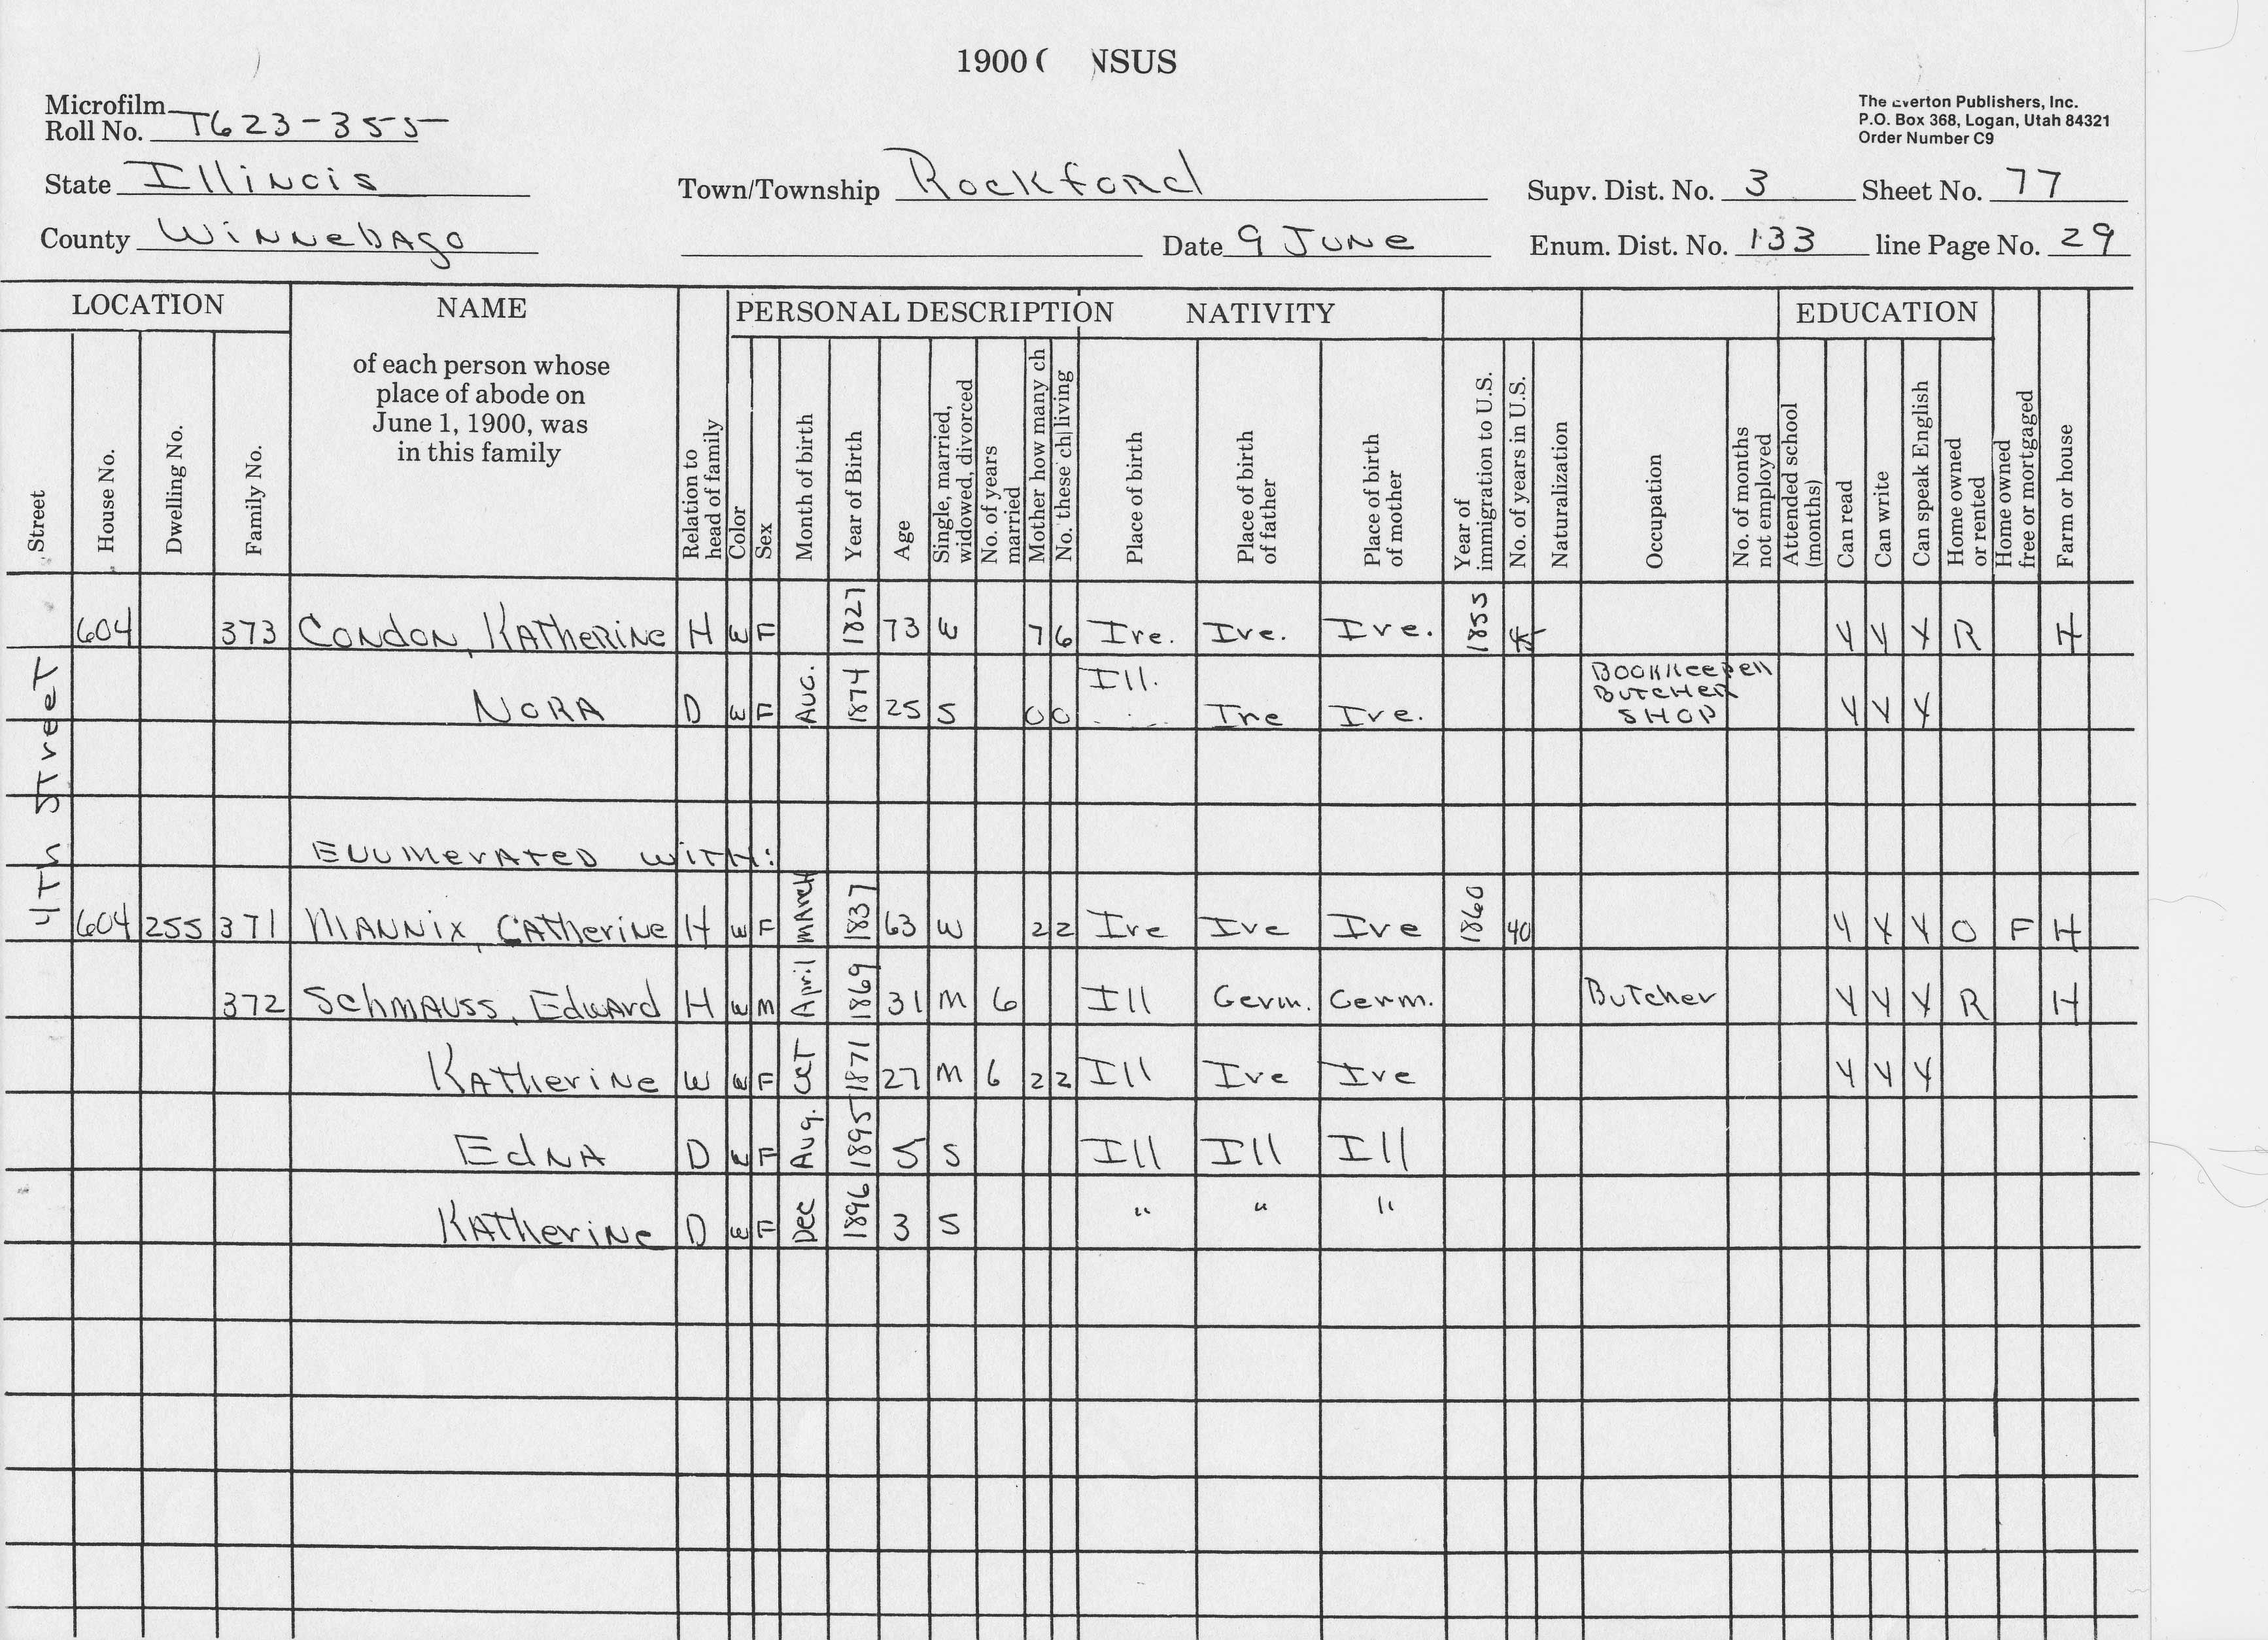 1900 C NSUS
Microfilm
Roll No. T623-355
The Everton Publishers, Inc.
P.O. Box 368, Logan, Utah 84321
Order Number C9
State Illinois Town/Township Rockford Supv. Dist. No. 3 Sheet No. 77
County Winnebago Date 9 June Enum. Dist. No. 133 line Page No. 29
LOCATION NAME PERSONAL DESCRIPTION NATIVITY EDUCATION
of each person whose
place of abode on
June 1, 1900, was
in this family
Street
House No.
Dwelling No.
Family No.
Relation to
head of family
Color
Sex
Month of birth
Year of Birth
Age
Single, married,
widowed, divorced
No. of years
married
Mother how many ch
No. these ch living
Place of birth
Place of birth
of father
Place of birth
of mother
Year of
immigration to U.S.
No. of years in U.S.
Naturalization
Occupation
No. of months
not employed
Attended school
(months)
Can read
Can write
Can speak English
Home owned
or rented
Home owned
free or mortgaged
Farm or house
4th Street
604 373 Condon, Katherine H W F 1827 73 W 7 6 Ire. Ire. Ire. 1855 Y Y Y R H
Nora D W F Aug. 1874 25 S 0 0 Ill. Ire Ire. Bookkeeper Butcher Shop Y Y Y
Enumerated with:
604 255 371 Mannix, Catherine H W F March 1837 63 W 2 2 Ire Ire Ire 1860 40 Y Y Y O F H
372 Schmauss, Edward H W M April 1869 31 M 6 Ill Germ. Germ. Butcher Y Y Y R H
Katherine W W F Oct 1871 27 M 6 2 2 Ill Ire Ire Y Y Y
Edna D W F Aug. 1895 5 S Ill Ill Ill
Katherine D W F Dec 1896 3 S " " "